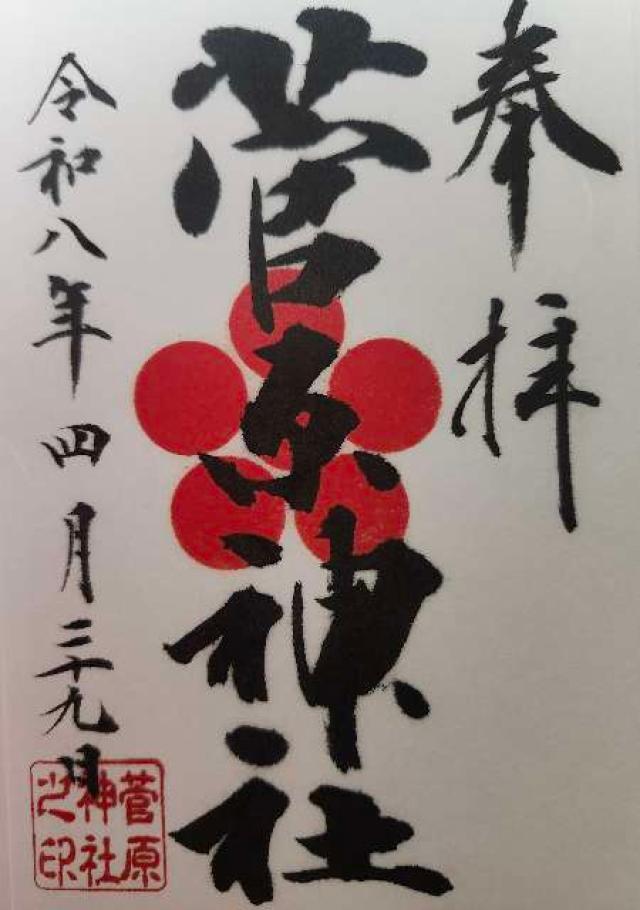 奉拝
菅原神社
令和八年四月二十九日
菅原
神社
之印